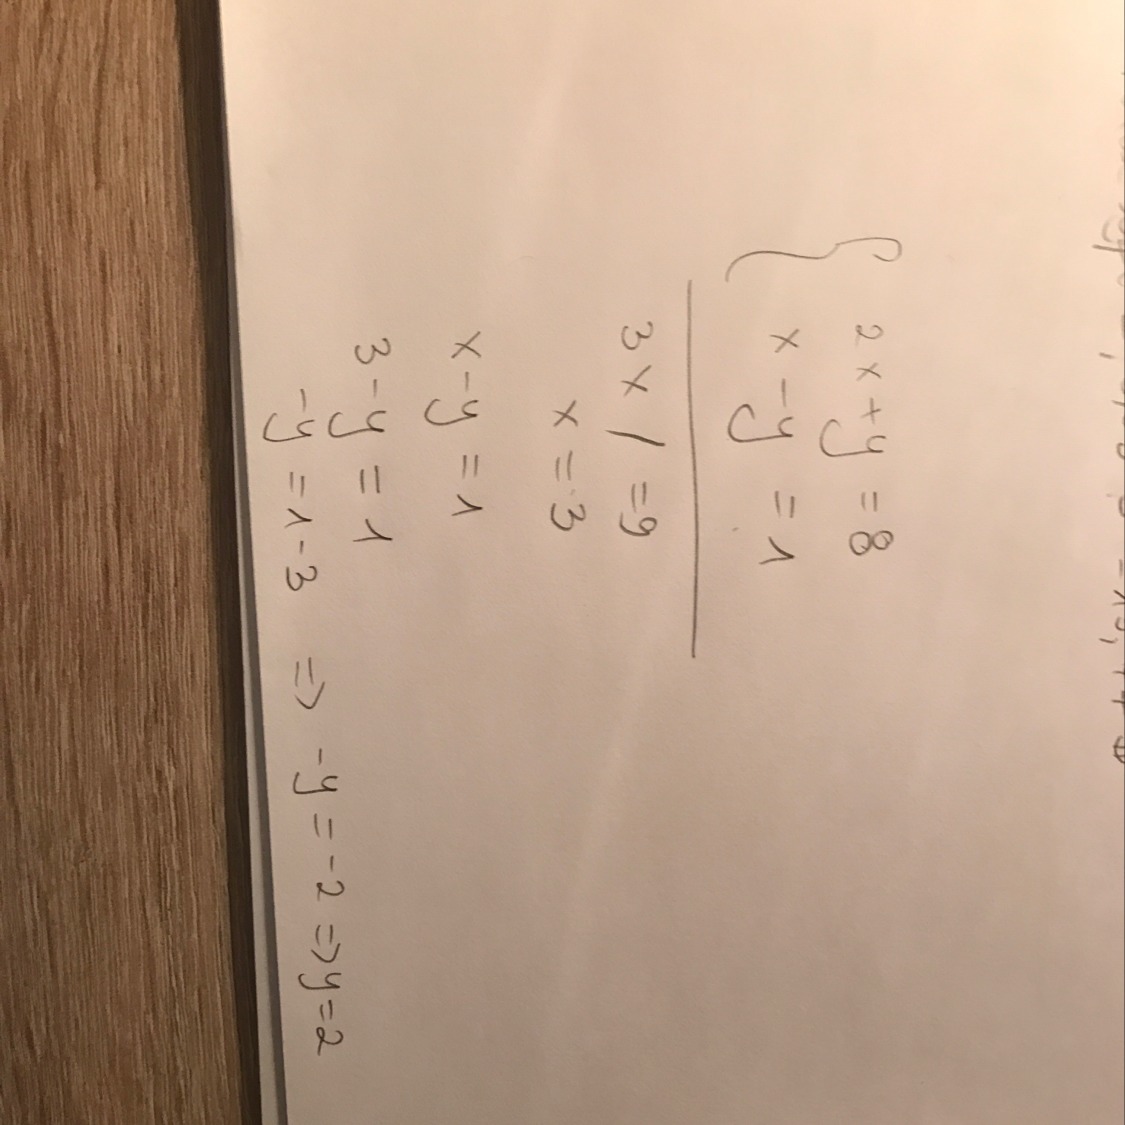 2x + y = 8
x - y = 1
3x / = 9
x = 3
x - y = 1
3 - y = 1
-y = 1 - 3 => -y = -2 => y = 2